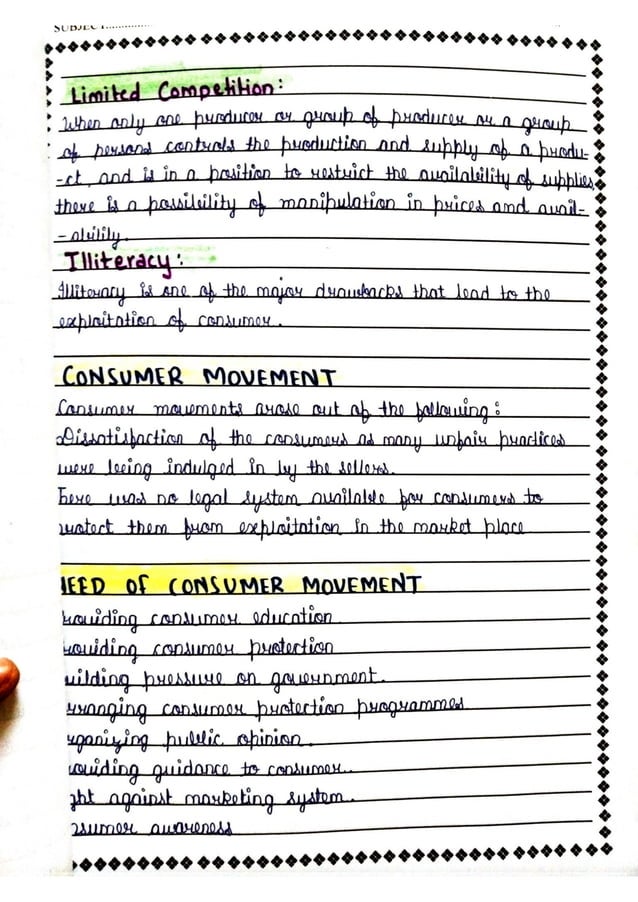 SUBJECT..............
Limited Competition:
When only one producer or group of producer or a group
of persons controls the production and supply of a produ-
-ct, and is in a position to restrict the availability of supplies,
there is a possibility of manipulation in prices and avail-
-ability.
Illiteracy:
Illiteracy is one of the major drawbacks that lead to the
exploitation of consumer.
CONSUMER MOVEMENT
Consumer movements arose out of the following:
Dissatisfaction of the consumers as many unfair practices
were being indulged in by the sellers.
here was no legal system available for consumers to
rotect them from exploitation in the market place
EED OF CONSUMER MOVEMENT
roviding consumer education
roviding consumer protection
uilding pressure on government.
rranging consumer protection programmes
rganizing public opinion.
roviding guidance to consumer..
ght against marketing system.
nsumer awareness